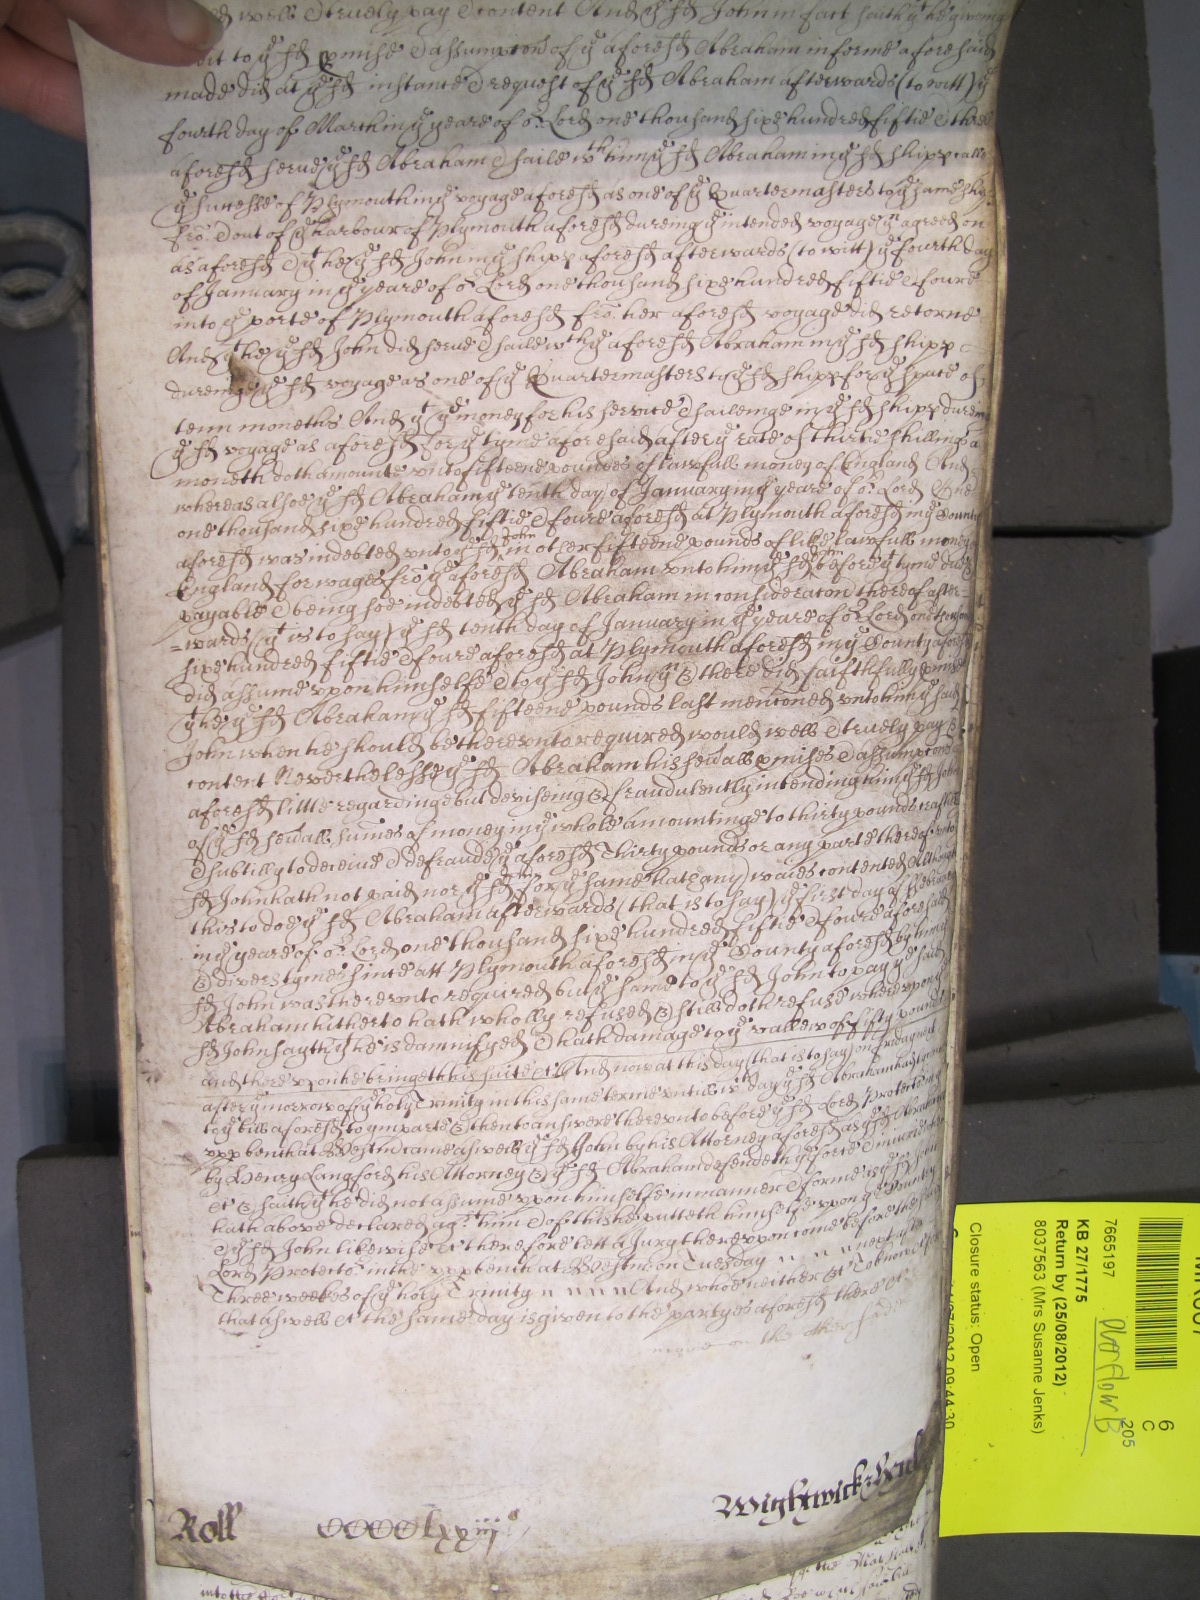 well & truely pay & content And ye sd John in fact saith yt he giveing
to ye sd pmise & assumpcon of ye aforesd Abraham in forme aforesaid
made did at ye sd instance & request of ye sd Abraham afterwards (to witt) ye
fourth day of March in ye yeare of or Lord one thousand sixe hundred fiftie & three
aforesd serve ye sd Abraham & saile wth him ye sd Abraham in ye sd shipp
ye Successe of Plymouth in ye voyage aforesd as one of ye Quartermasters to ye same shipp
fro & out of ye harbour of Plymouth aforesd dureing ye intended voyage yn agreed on
as aforesd & yt he ye sd John in ye shipp aforesd afterwards (to witt) ye fourth day
of January in ye yeare of or Lord one thousand sixe hundred fiftie & foure
into ye porte of Plymouth aforesd fro her aforesd voyage did retorne
And yt he ye sd John did serve & saile wth ye aforesd Abraham in ye sd shipp
dureinge ye sd voyage as one of ye Quartermasters to ye sd shipp for ye space of
tenn moneths And yt ye money for his service & saileinge in ye sd shipp dureing
ye sd voyage as aforesd for ye tyme aforesaid after ye rate of thirtie shillings a
moneth doth amounte unto fifteene pounds of lawfull money of England And
whereas alsoe ye sd Abraham ye tenth day of January in ye yeare of or Lord
one thousand sixe hundred fiftie & foure aforesd at Plymouth aforesd in ye County
aforesd was indebted unto ye sd John in other fifteene pounds of like lawfull money
England for wages fro ye aforesd Abraham unto him ye sd John before yt tyme due &
payable & being soe indebted ye sd Abraham in consideracon thereof after-
=wards (yt is to say) ye sd tenth day of January in ye yeare of or Lord one thousand
sixe hundred fiftie & foure aforesd at Plymouth aforesd in ye County aforesd
did assume upon himselfe & to ye sd John yn & there did faithfully pmise
yt he ye sd Abraham ye sd fifteene pounds last menconed unto him ye said
John when he should be thereunto required would well & truely pay &
content Neverthelesse ye sd Abraham his sevall pmises & assumpcons
aforesd little regardinge but deviseing & fraudulently intending him ye sd John
of ye sd sevall sumes of money in ye whole amountinge to thirty pounds
& subtilly to deceive & defraude ye aforesd Thirty pounds or any parte thereof unto
sd John hath not paid nor ye sd John for ye same hath any waies contented Although
this to doe ye sd Abraham afterwards (that is to say) ye first day of February
in ye yeare of or Lord one thousand sixe hundred fiftie & foure aforesaid
& divers tymes since att Plymouth aforesd in ye County aforesd by him ye
sd John was thereunto required but ye same to ye sd John to pay ye said
Abraham hitherto hath wholly refused & still doth refuse whereupon ye
sd John sayth yt he is damnifyed & hath damage to ye vallew of fifty pounds
and thereupon he bringeth his suite &c And now at this day (that is to say) on Friday next
after ye morrow of ye holy Trinity in this same terme untill wch day ye sd Abraham had
to ye bill aforesd to imparle & then to answere thereunto before ye sd Lord Protector in ye
upp bench at Westmr came aswell ye sd John by his Attorney aforesd as ye sd Abraham
by Henry Langford his Attorney & ye sd Abraham defendeth ye force & injurie
&c & saith yt he did not assume upon himselfe in manner & forme as ye sd John
hath above declared agt him & of this he putteth himselfe upon ye Country
& ye sd John likewise &c therefore lett a Jury thereupon come before the said
Lord Protector in the upp bench at Westmr on Tuesday next after
Three weekes of ye holy Trinity And who neither &c To
that aswell &c the same day is given to the partyes aforesd there &c
on the other side
Roll
CCCClxxiiij
Wightwick:
7665197
KB 27/1775
Return by (25/08/2012)
8037563 (Mrs Susanne Jenks)
Closure status: Open
overflow B
205
6
C